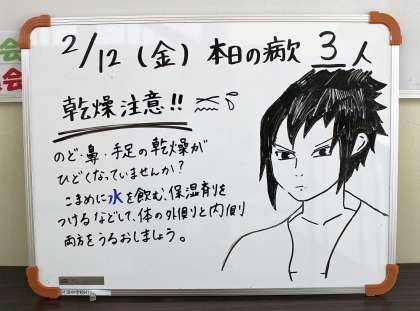 2/12(金) 本日の病欠 3人
乾燥注意!!
のど・鼻・手足の乾燥が
ひどくなっていませんか?
こまめに水を飲む、保湿剤を
つけるなどして、体の外側と内側
両方をうるおしましょう。